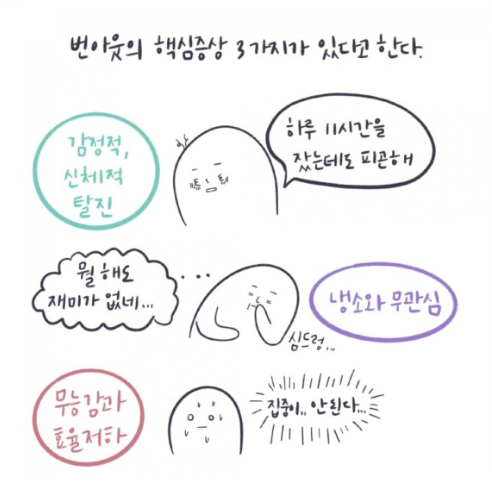 번아웃의 핵심증상 3가지가 있다고 한다.
감정적,
신체적
탈진
하루 11시간을
잤는데도 피곤해
뭘 해도
재미가 없네...
냉소와 무관심
심드렁...
무능감과
효율저하
집중이.. 안된다...